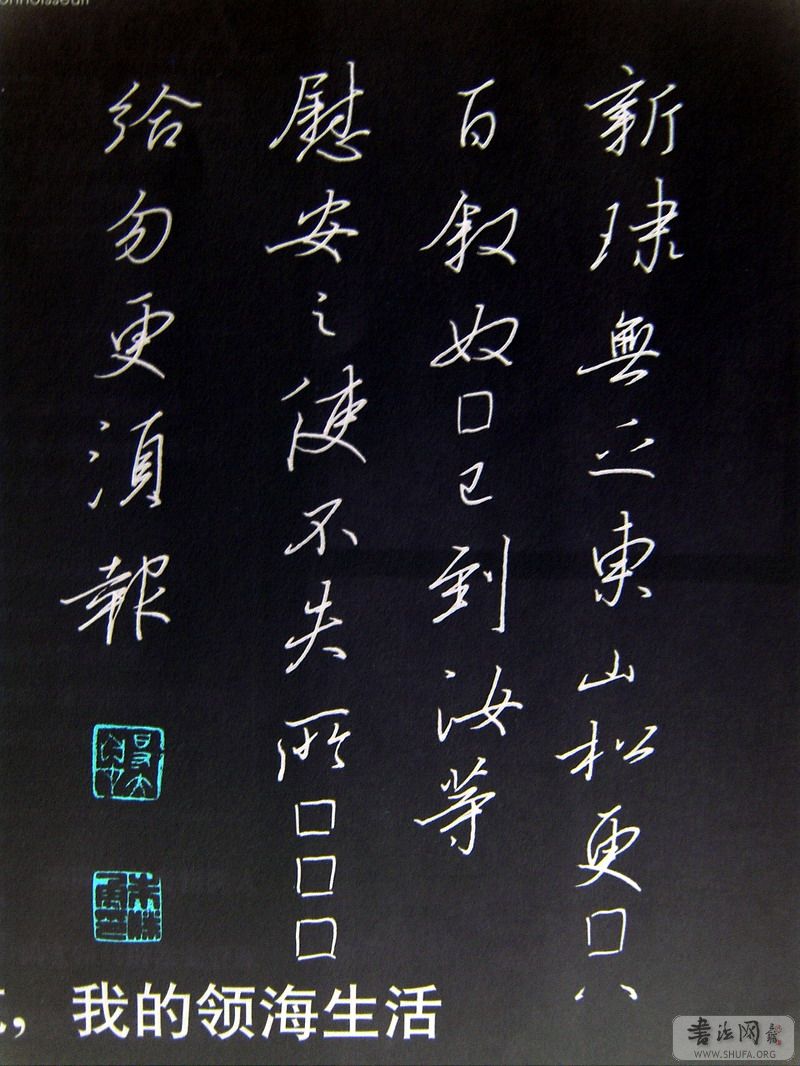 onnoisseur
新埭無乏東山松更□八
百叙奴□已到汝等
慰安之使不失所□□□
給勿更須報
，我的领海生活
书法网
WWW.SHUFA.ORG